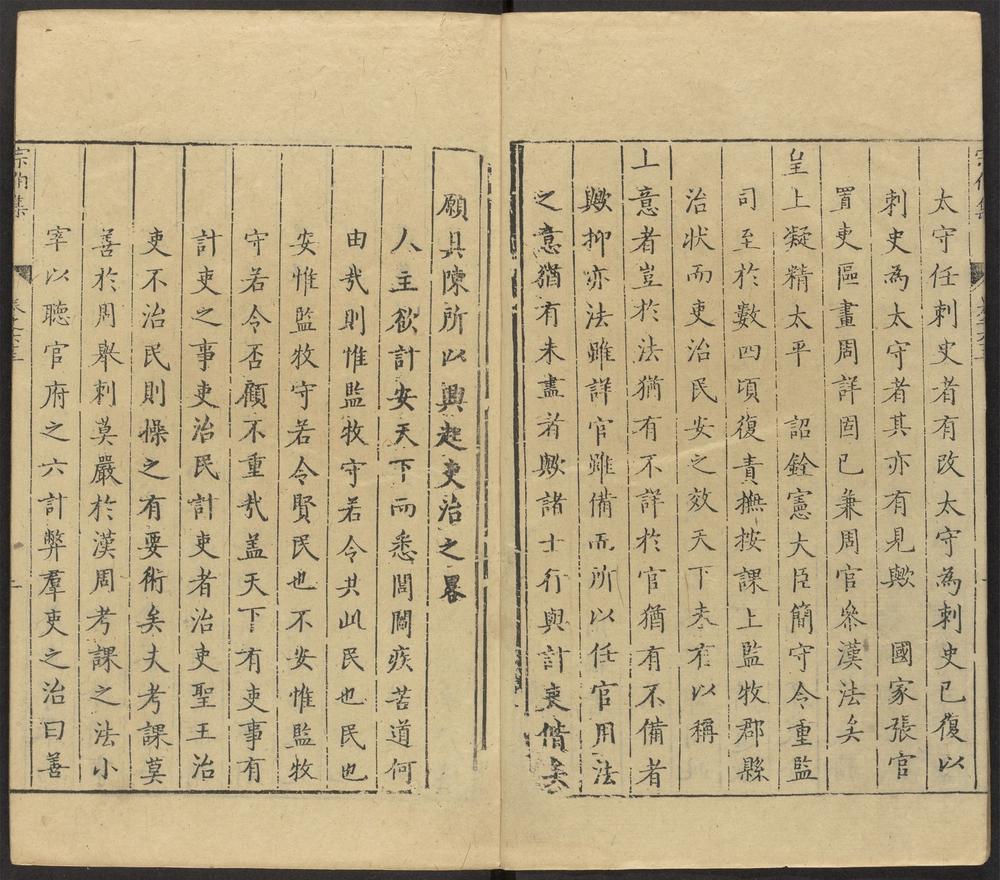 太守任刺史者有改太守為刺史已復以
刺史為太守者其亦有見歟　國家張官
置吏區畫周詳固已兼周官參漢法矣
皇上凝精太平　詔銓憲大臣簡守令重監
司至於數四頃復責撫按課上監牧郡縣
治狀而吏治民安之效天下未有以稱
上意者豈於法猶有不詳於官猶有不備者
歟抑亦法雖詳官雖備而所以任官用法
之意猶有未盡者歟諸士行與計吏偕矣
願具陳所以興起吏治之畧
人主欲計安天下而悉閭閻疾苦道何
由哉則惟監牧守若令共此民也民也
安惟監牧守若令賢民也不安惟監牧
守若令否顧不重哉盖天下有吏事有
計吏之事吏治民計吏者治吏聖王治
吏不治民則操之有要術矣夫考課莫
善於周舉刺莫嚴於漢周考課之法小
宰以聽官府之六計弊羣吏之治曰善
宗伯集